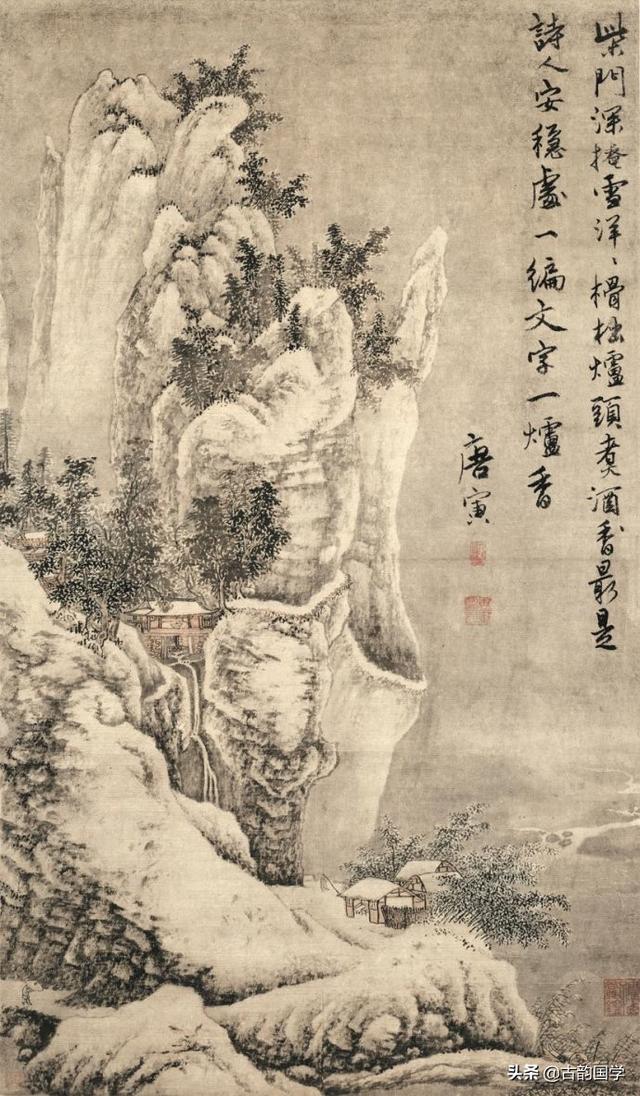 柴門深掩雪洋〻榾柮爐頭煮酒香最是
詩人安穩處一編文字一爐香
唐寅
头条 @古韵国学